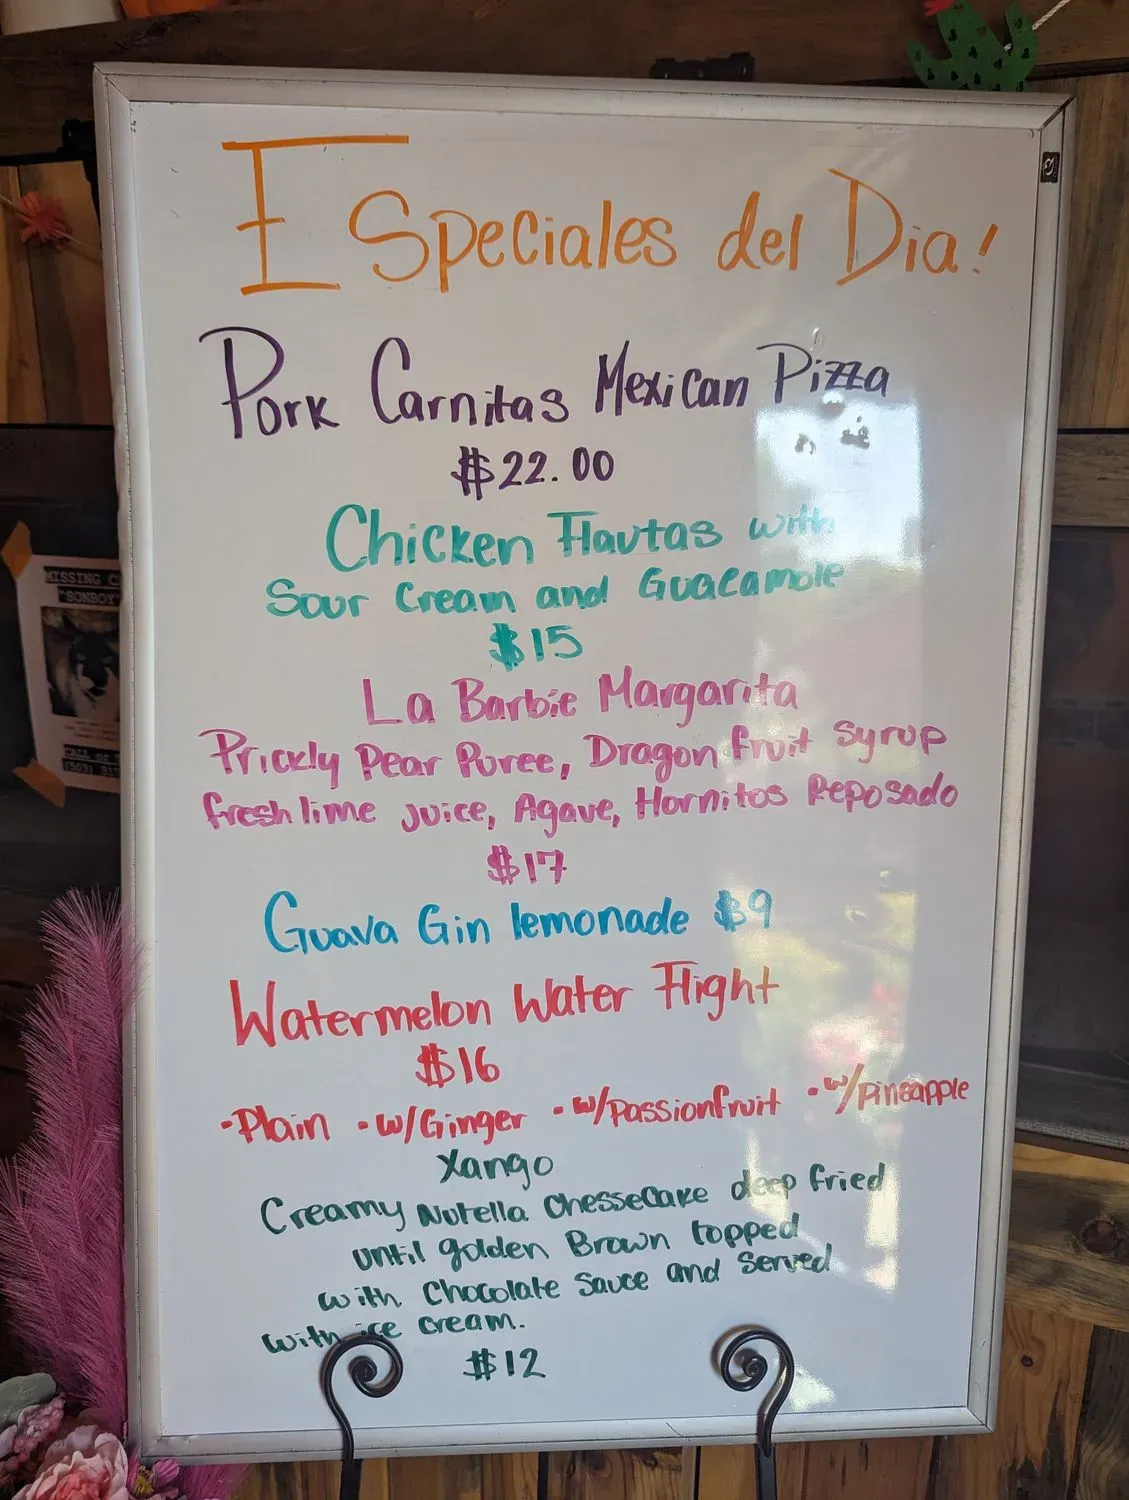 Especiales del Dia!
Pork Carnitas Mexican Pizza
$22.00
Chicken Flautas with
Sour Cream and Guacamole
$15
La Barbie Margarita
Prickly Pear Puree, Dragon fruit Syrup
fresh lime Juice, Agave, Hornitos Reposado
$17
Guava Gin lemonade $9
Watermelon Water Flight
$16
•Plain •w/Ginger •w/Passionfruit •w/pineapple
Xango
Creamy Nutella Chessecake deep fried
until golden Brown topped
with Chocolate Sauce and Served
with ice cream.
$12
MISSING
"SONBOY"
CALL
(503)